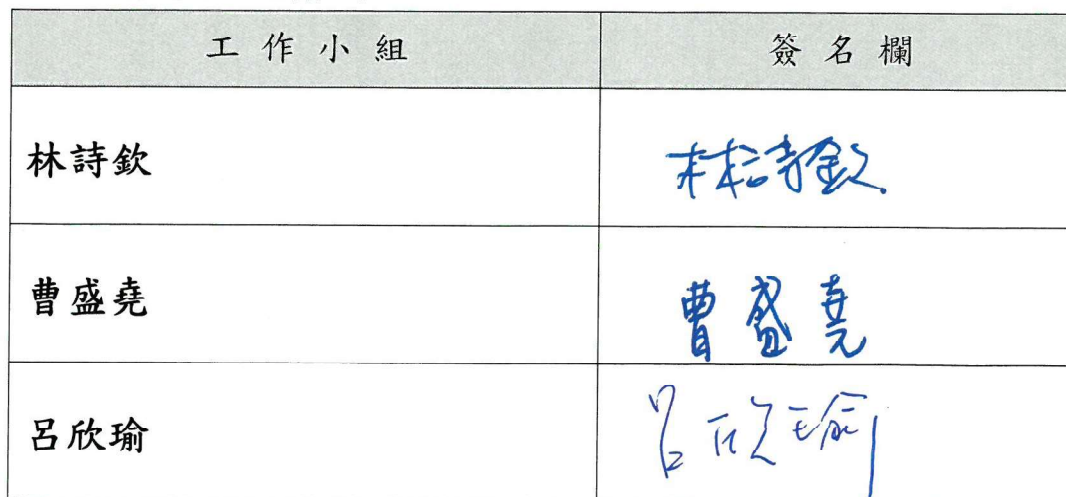 工作小組 簽名欄
林詩欽 林詩欽
曹盛堯 曹盛堯
呂欣瑜 呂欣瑜